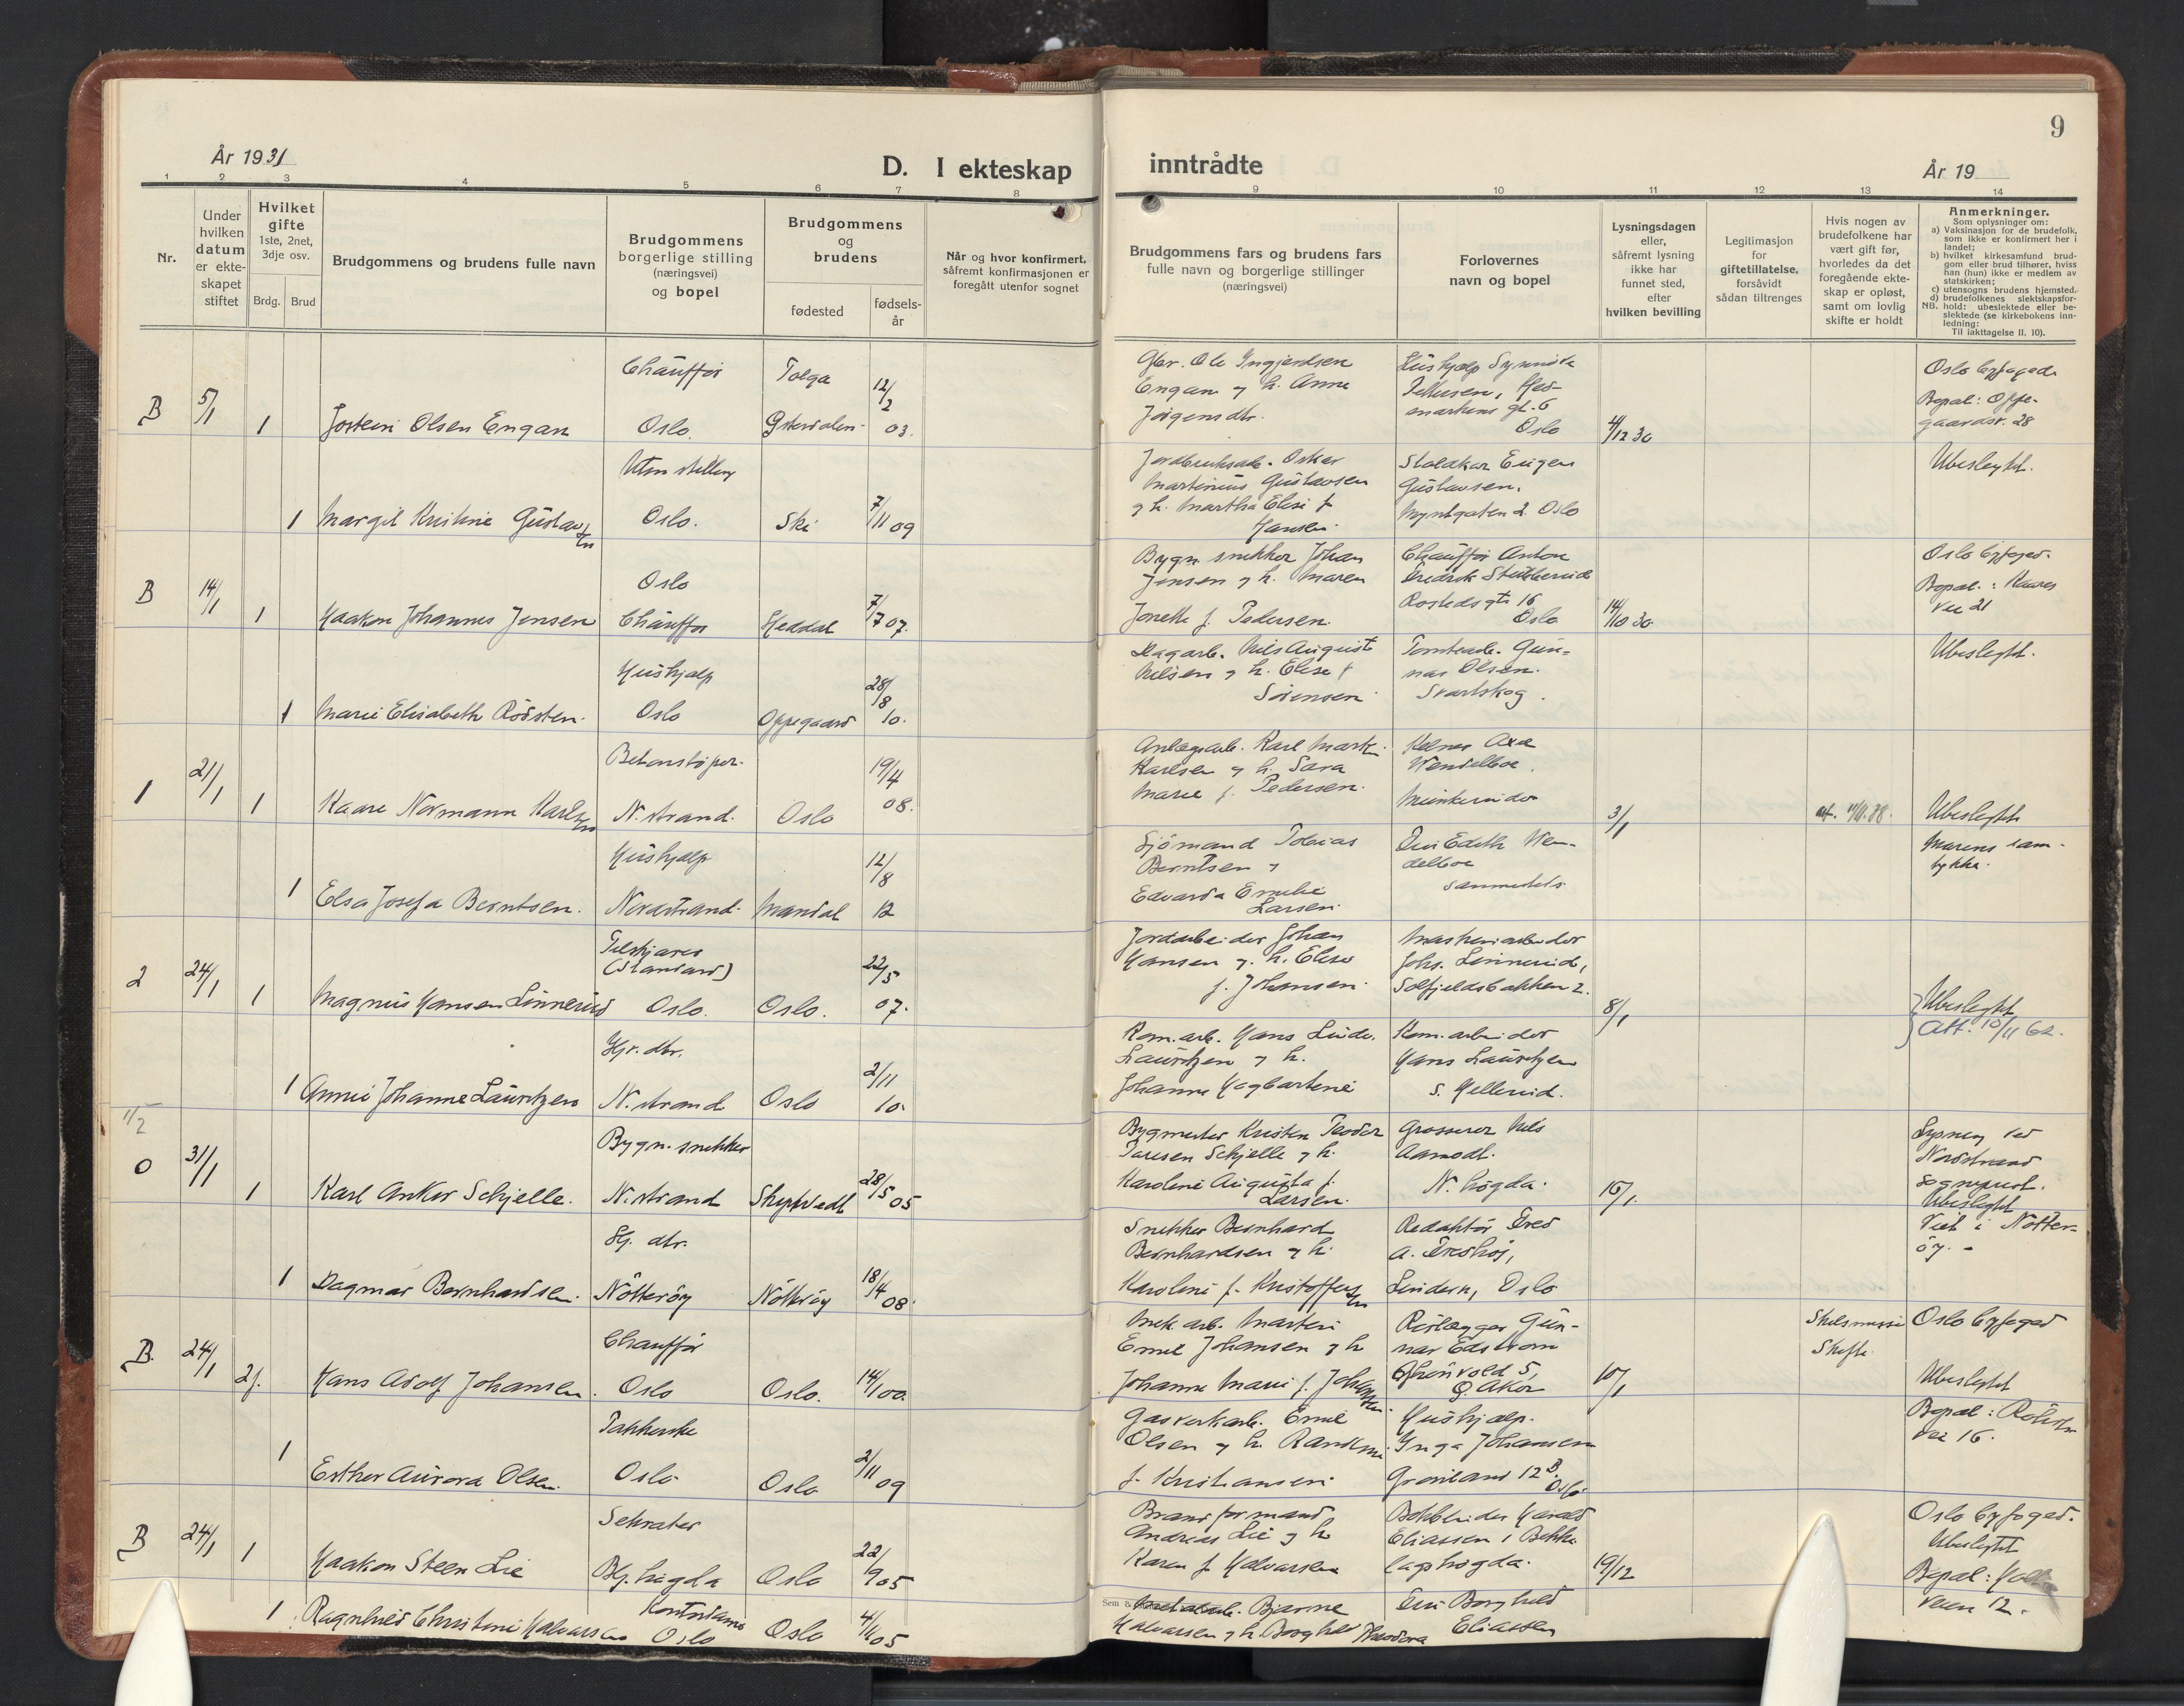 År 1931
D. I ekteskap
inntrådte
År 19
9
1 2 3 4 5 6 7 8 9 10 11 12 13 14
Nr.
Under hvilken datum er ekteskapet stiftet
Hvilket gifte
1ste, 2net, 3dje osv.
Brdg. Brud
Brudgommens og brudens fulle navn
Brudgommens borgerlige stilling (næringsvei) og bopel
Brudgommens og brudens
fødested
fødselsår
Når og hvor konfirmert, såfremt konfirmasjonen er foregått utenfor sognet
Brudgommens fars og brudens fars fulle navn og borgerlige stillinger (næringsvei)
Forlovernes navn og bopel
Lysningsdagen eller, såfremt lysning ikke har funnet sted, efter hvilken bevilling
Legitimasjon for giftetillatelse, forsåvidt sådan tiltrenges
Hvis nogen av brudefolkene har vært gift før, hvorledes da det foregående ekteskap er opløst, samt om lovlig skifte er holdt
Anmerkninger.
Som oplysninger om:
a) Vaksinasjon for de brudefolk, som ikke er konfirmert her i landet;
b) hvilket kirkesamfund brudgom eller brud tilhører, hviss han (hun) ikke er medlem av statskirken;
c) utensogns brudens hjemsted.
d) brudefolkenes slektskapsforhold: ubeslektede eller beslektede (se kirkebokens innledning:
NB.
Til iakttagelse II. 10).
B 5/1 1 Jostein Olsen Engan
Chauffør Oslo.
Tolga Østerdalen
12/2 03.
Gbr. Ole Ingjerdsen
Engan og h. Anne
Jørgensdtr.
Hushjelp
markens gt. 6
Oslo
4/12 30
Oslo byfoged
Bopæl: Oppe-
gaardsv. 28
1 Margit Kristine Gustavsen
Uten stilling Oslo.
Ski
7/11 09
Oskar
Martinius Gustavsen
og h. Martha Elise f.
Hansen.
Eugen
Gustavsen.
Myntgaten 2. Oslo
Ubeslegtet.
B 14/1 1 Haakon Johannes Jensen
Oslo
Chauffør
Heddal
7/7 07.
Bygn. snekker Johan
Jensen og h. Maren
Jonette f. Pedersen.
Chauffør Anton
Fredrik Stubberud
Rostedsgt. 16
Oslo
14/10 30.
Oslo byfoged.
Bopæl: Kaares
vei 21
1 Marie Elisabeth Rødsten.
Hushjælp
Oslo
Oppegaard
28/8 10.
Dagarb. Nils August
Nilsen og h. Elise f.
Sørensen
Tomtearb. Gun-
nar Olsen.
Svartskog.
Ubeslegtet.
1 21/1 1 Kaare Normann Karlsen
Betonstøper.
N. strand.
Oslo
19/4 08.
Anlægsarb. Karl Martin
Karlsen og h. Sara
Marie f. Pedersen.
Kelner Axel
Wendelboe.
Munkerud
3/1
Ubeslegtet
1 Elsa Josefa Berntsen.
Hushjælp
Nordstrand.
Mandal
12/8 12
Sjømand Tobias
Berntsen og
Edvarda Emelie
Larsen.
Fru Edith Wen-
delboe
sammesteds
Morens sam-
tykke.
2 24/1 1 Magnus Hansen Linnerud
(Standard)
Oslo.
Oslo.
22/5 07.
Jordarbeider Johan
Hansen og h. Elise
f. Johansen.
Maskinarbeider
Johs. Linnerud,
Solfjeldsbakken 2.
8/1
Ubeslegtet
Att. 10/11 62.
1 Annie Johanne Lauritzen
Hj. dtr.
N. strand
Oslo
2/11 10.
Kom. arb. Hans
Lauritzen og h.
Johanne Hagbartine
Kom. arbeider
Hans Lauritzen
s. Hellerud.
11/2
0 31/1 1 Karl Anker Schjelle.
Bygn. snekker
N. strand
Skiptvedt
28/5 05
Bygmester Kristen Teodor
Schjelle og h.
Karoline Augusta f.
Larsen.
Grosserer Nils
Aamodt.
N. høgda.
15/1.
Lysning ved
Nordstrand
sogneprest.
Ubeslegtet
Viet i Nøtter-
øy. -
1 Dagmar Bernhardsen.
Hj. dtr.
Nøtterøy
Nøtterøy
18/4 08.
Snekker Bernhard
Bernhardsen og h.
Karoline f. Kristoffersen
Redaktør Fred
A. Fredhøi,
Lindern, Oslo
B. 24/1 2f. Hans Adolf Johansen.
Chauffør
Oslo
Oslo.
14/1 00.
Mek. arb. Martin
Emil Johansen og h.
Johanne Marie f. Johansen
Rørlægger Gun-
nar Edstrøm
Ø. Aker
15/1
Skilsmisse
Skifte.
Oslo byfoged
Ubeslegtet
1 Esther Aurora Olsen.
Pakkerske
Oslo
Oslo
2/11 09
Gasverkarb. Emil
Olsen og h. Randine
f. Kristiansen.
Hushjælp.
Inga Johansen
Grønland 12 B.
Oslo
Bopæl:
vei 16.
B 24/1 1 Haakon Steen Lie
Sekretær
Bl. høgda
Oslo
22/9 05
Brandformand
Andreas Lie og h.
Karen f. Halvorsen
Bokbinder Harald
Eliassen, Bekke-
lagshøgda.
19/12
Oslo byfoged.
Ubeslegtet
Bopæl:
veien 12.
1 Ragnhild Christine Halvorsen
Kontordame
Oslo
Oslo
4/11 05
Bjarne
Halvorsen og h. Borghild Theodora
Fru Borghild
Eliassen